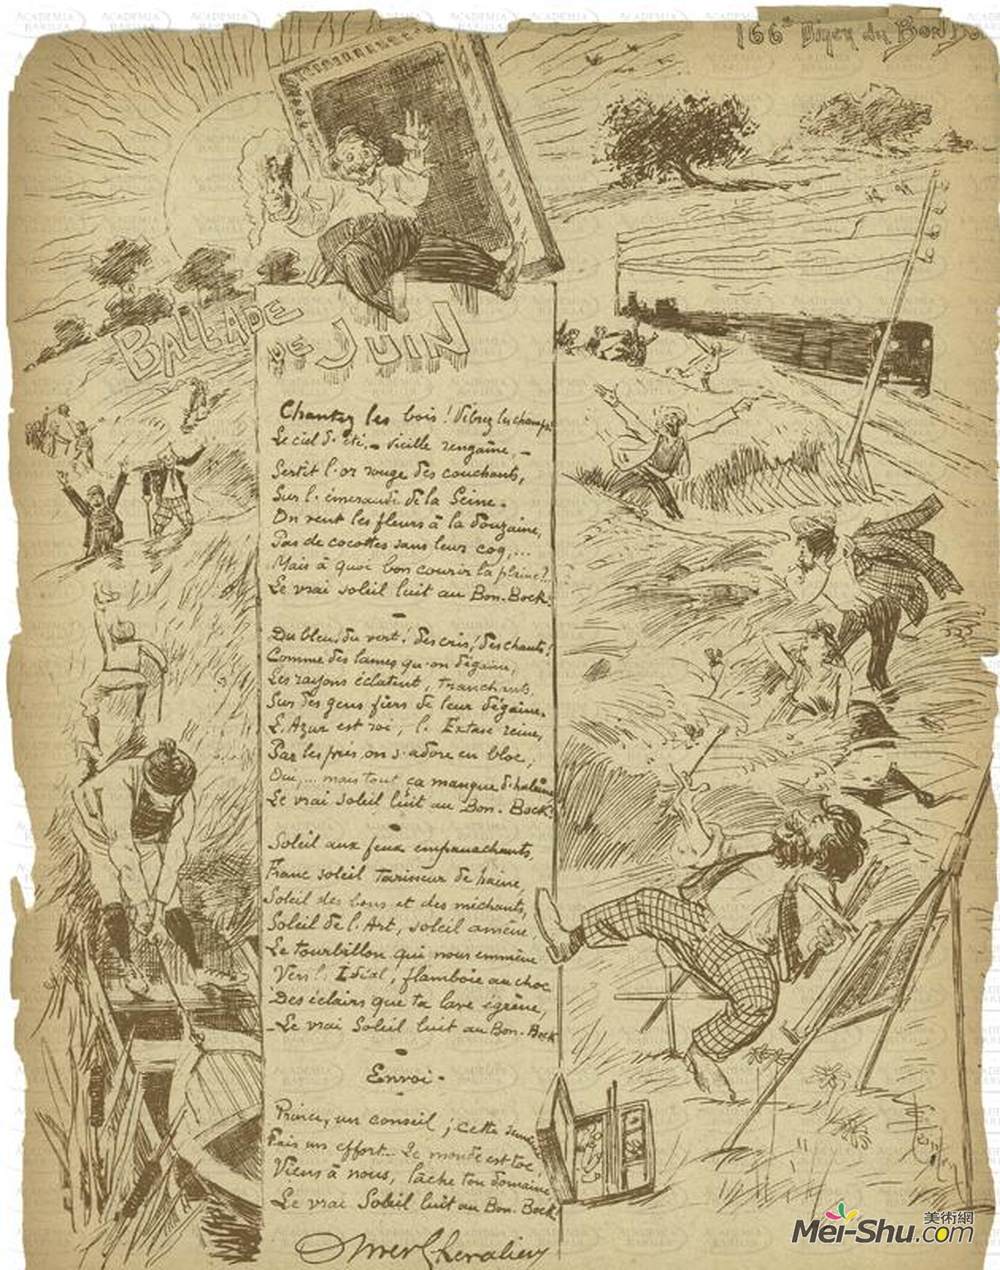 166e Diner du Bon Bock
BALLADE
DE JUIN
Chantez les bois ! Vibrez les champs !
Le ciel d'été, - vieille rengaine, -
Sertit l'or rouge des couchants,
Sur l'émeraude de la Seine.
On vend les fleurs à la douzaine,
Pas de cocottes sans leur coq,...
Mais à quoi bon courir la plaine ?
Le vrai soleil luit au Bon-Bock !
Du bleu, du vert ! des cris, des chants !
Comme des lames qu'on dégaine,
Les rayons éclatent, tranchants,
Sur des gens fiers de leur dégaine.
L'Azur est roi, l'Extase reine,
Par les prés on s'adore en bloc,
Oui,... mais tout ça manque d'haleine
Le vrai soleil luit au Bon-Bock !
Soleil aux feux empanachants,
Franc soleil tarisseur de haine,
Soleil des bons et des méchants,
Soleil de l'Art, soleil amène,
Le tourbillon qui nous emmène
Vers l'Idéal, flamboie au choc
Des éclairs que ta lave égrène,
Le vrai Soleil luit au Bon-Bock
Envoi -
Prince, un conseil ; cette semaine
Fais un effort. Le monde est toc,
Viens à nous, lâche ton domaine,
Le vrai Soleil luit au Bon-Bock !
Omer Chevalier
美術網
Mei-Shu.com